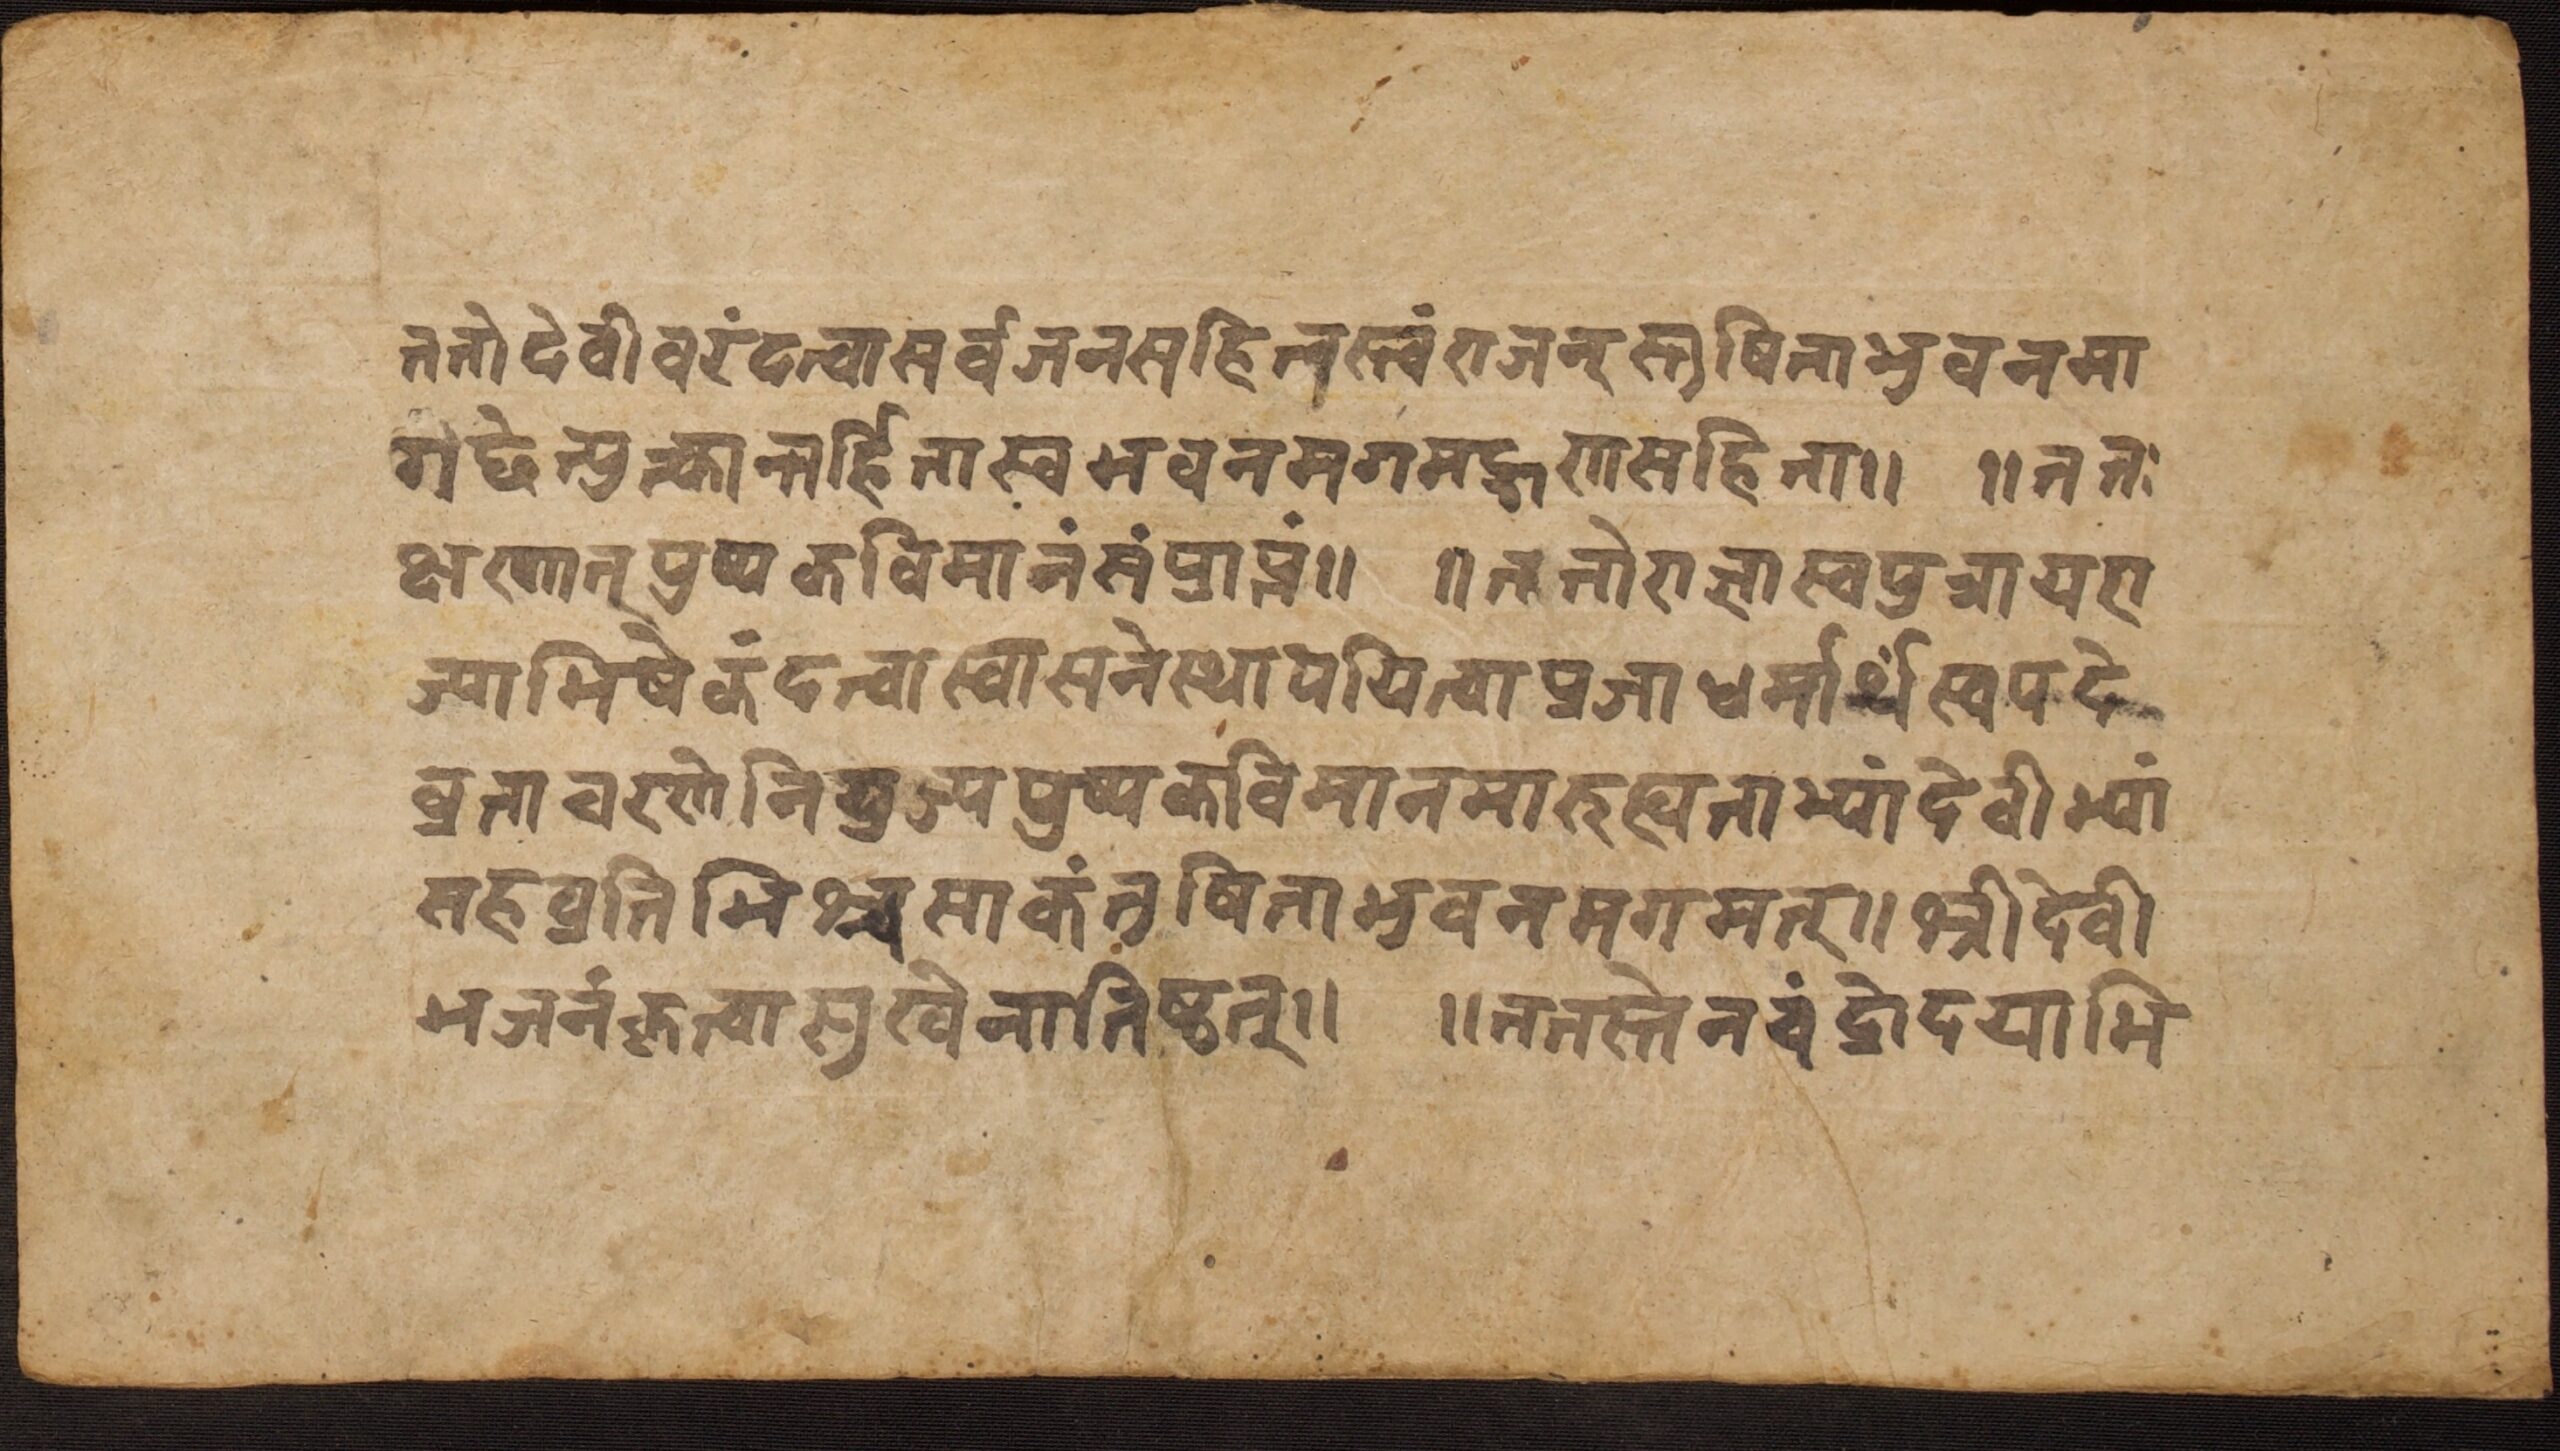 ततो देवी वरं दत्वा सर्वजनसहितस्त्वं राजन् स्तुषिताभुवनमा
गछेत्युत्कान्तर्हिता स्वभवनमगमद्गणसहिता॥ ॥ततः
क्षणात् पुष्पकविमानं संप्राप्तं॥ ॥ततो राजा स्वपुत्राय रा
ज्याभिषेकं दत्वा स्वासने स्थापयित्वा प्रजाधर्मार्थं स्वपदे
व्रताचरणे नियुज्य पुष्पकविमानमारुह्य ताभ्यां देवीभ्यां
सह व्रतिभिश्च साकं तुषिताभुवनमगमत्॥ श्रीदेवी
भजनं कृत्वा सुखेनातिष्ठत्॥ ॥ततस्तेन चंद्रोदयाभि